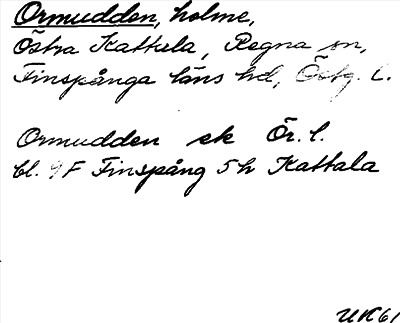 Ormudden, holme,
Östra Kattala, Regna sn,
Finspånga läns hd, Östg. l.
Ormudden ek Ör. l.
bl. 9F Finspång 5h Kattala
UK61